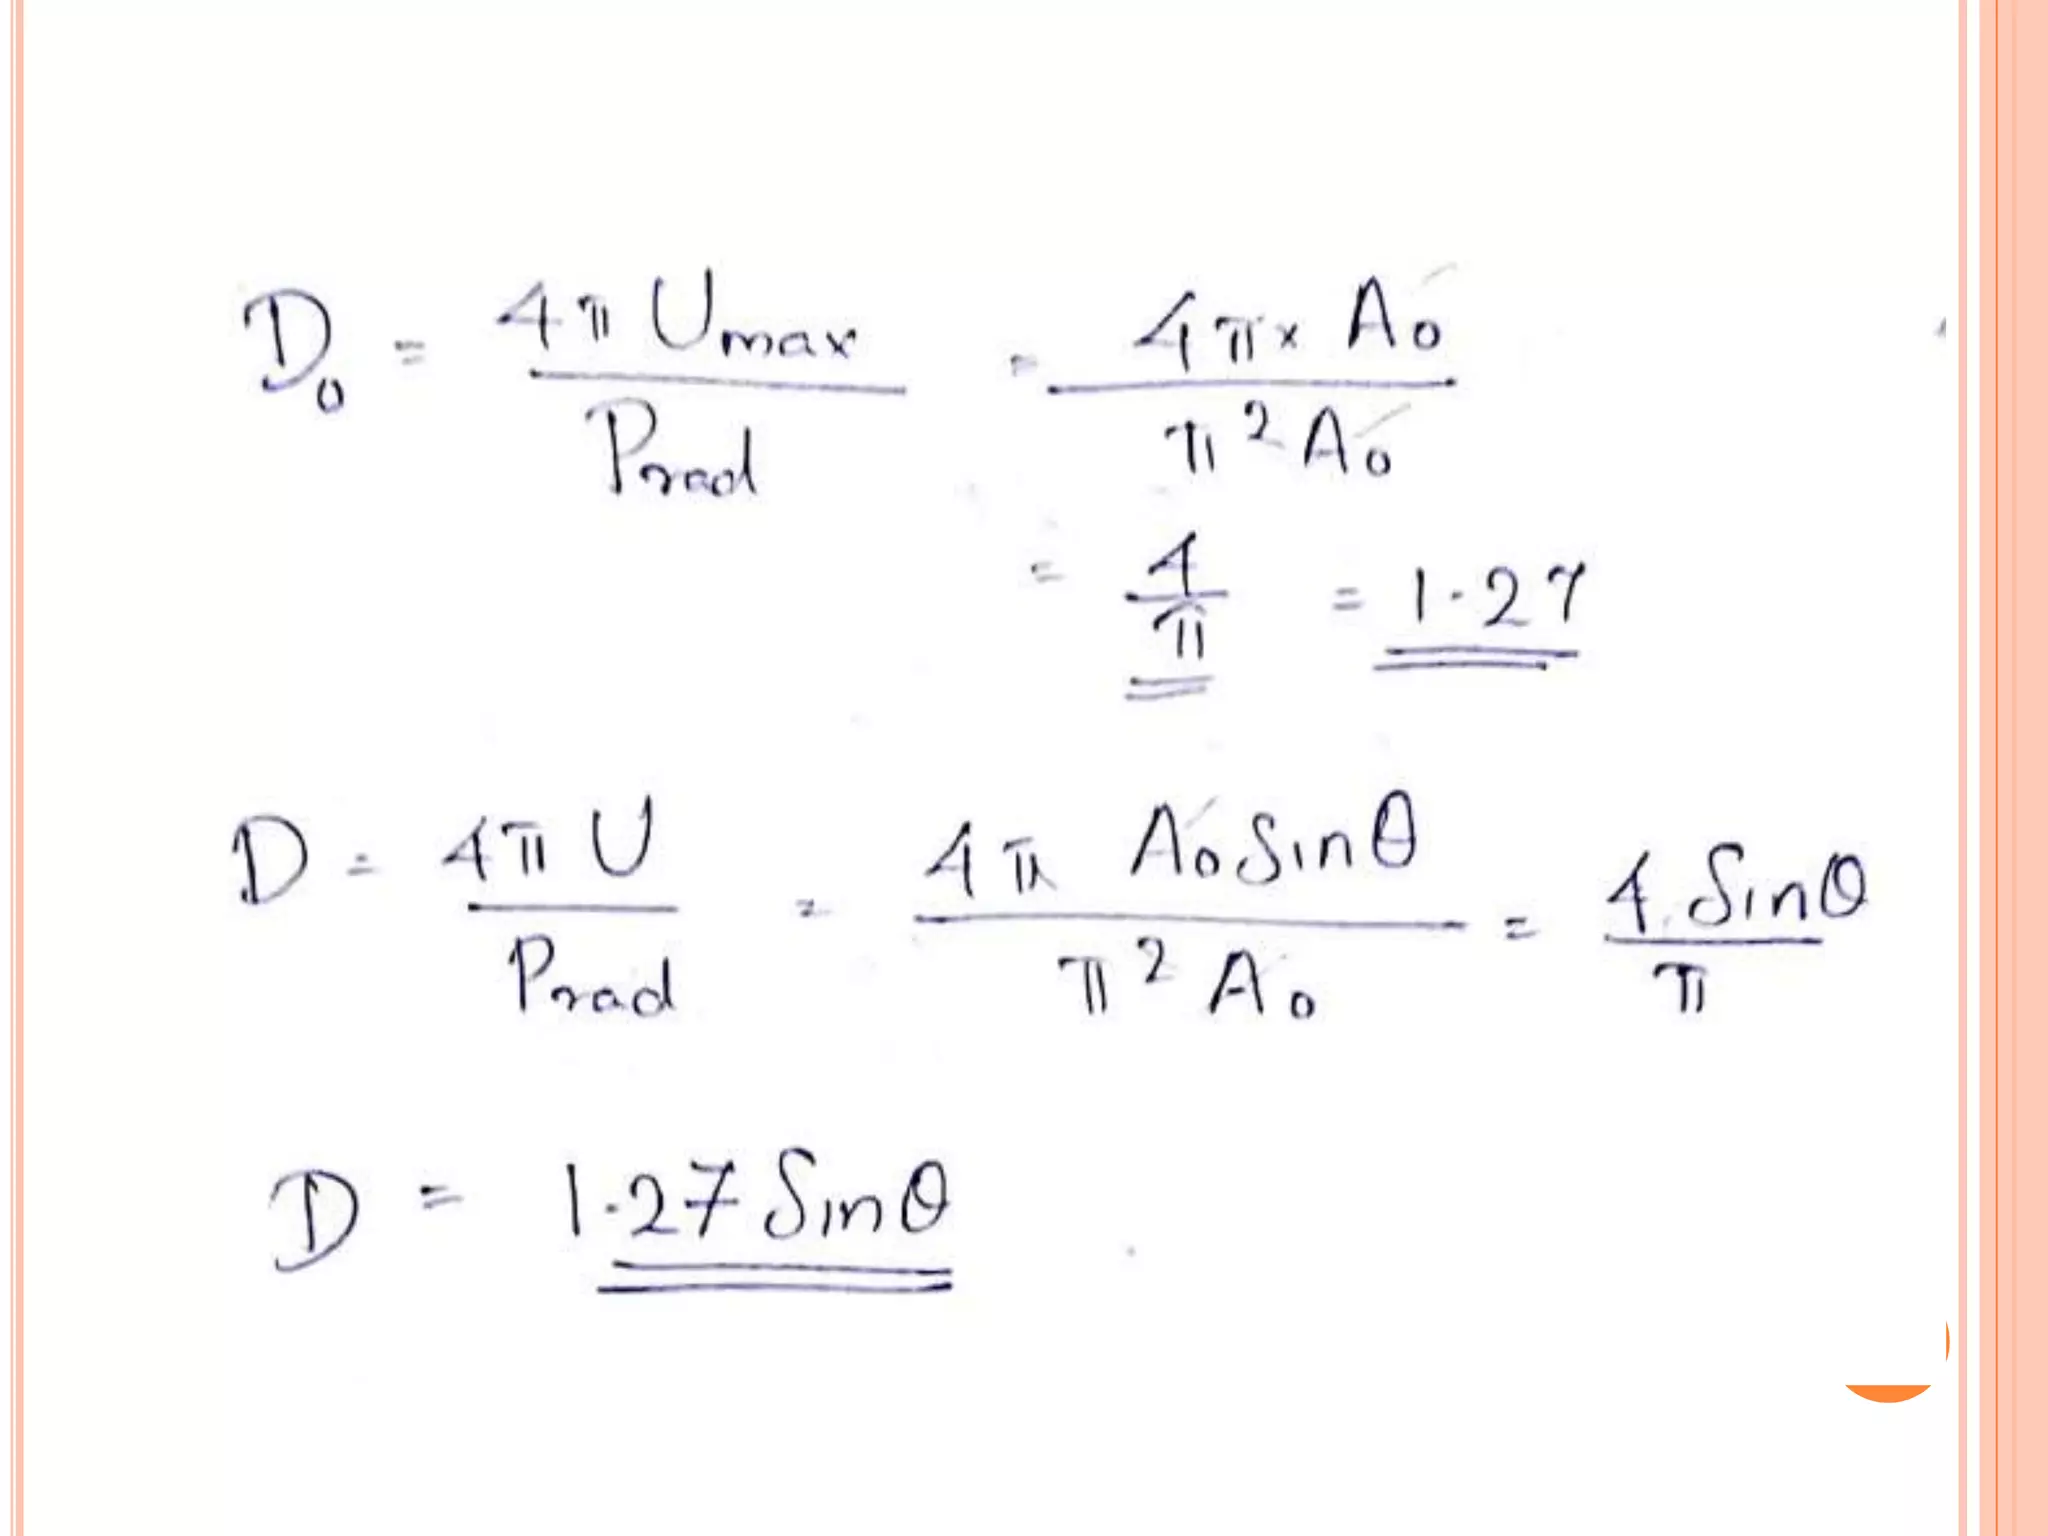 D₀ = 4π Umax / Prad = 4π × A₀ / π² A₀
= 4/π = 1.27
D = 4π U / Prad = 4π A₀ Sinθ / π² A₀ = 4 Sinθ / π
D = 1.27 Sinθ